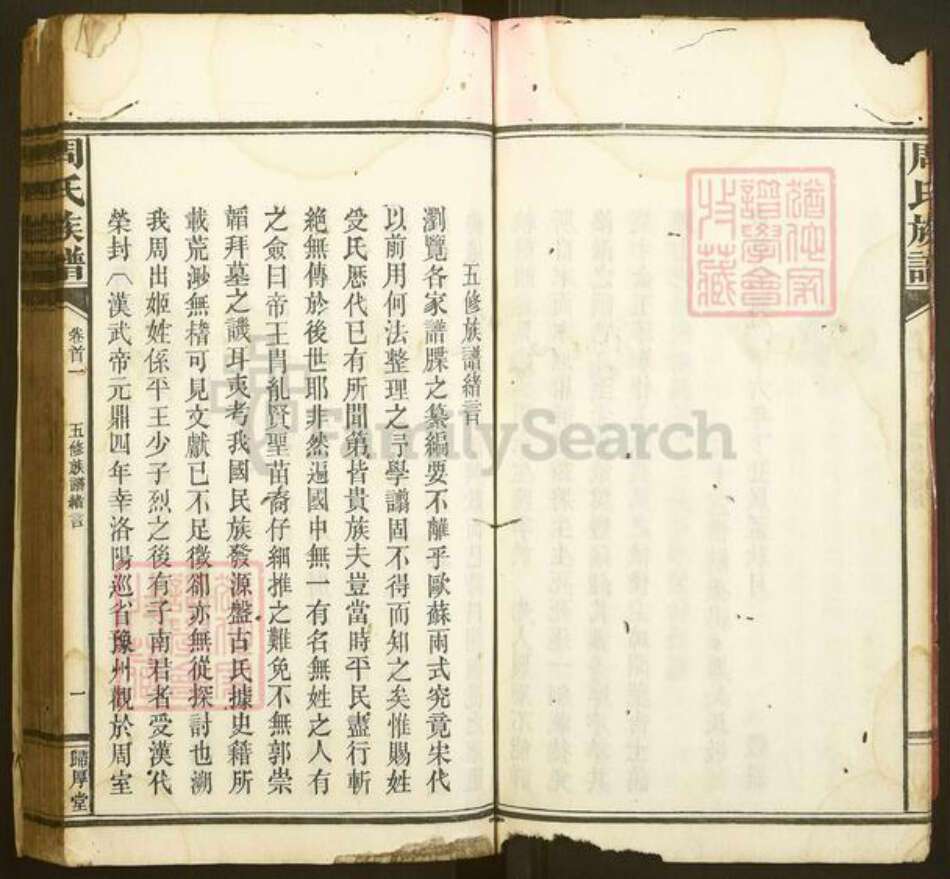 五修族譜緒言
瀏覽各家譜牒之纂編要不離乎歐蘇兩式究竟宋代
以前用何法整理之予學譾固不得而知之矣惟賜姓
受氏歷代已有所聞第皆貴族夫豈當時平民盡行斬
絕無傳於後世耶非然遍國中無一有名無姓之人有
之僉曰帝王胄胤賢聖苗裔仔細推之難免不無郭崇
韜拜墓之譏耳夷考我國民族發源盤古氏據史籍所
載荒渺無稽可見文獻已不足徵卻亦無從探討也溯
我周出姬姓係平王少子烈之後有子南君者受漢代
榮封（漢武帝元鼎四年幸洛陽巡省豫州觀於周室
周氏族譜
卷首一
五修族譜緒言
一
歸厚堂
周氏族譜
譜學會
收藏
FamilySearch